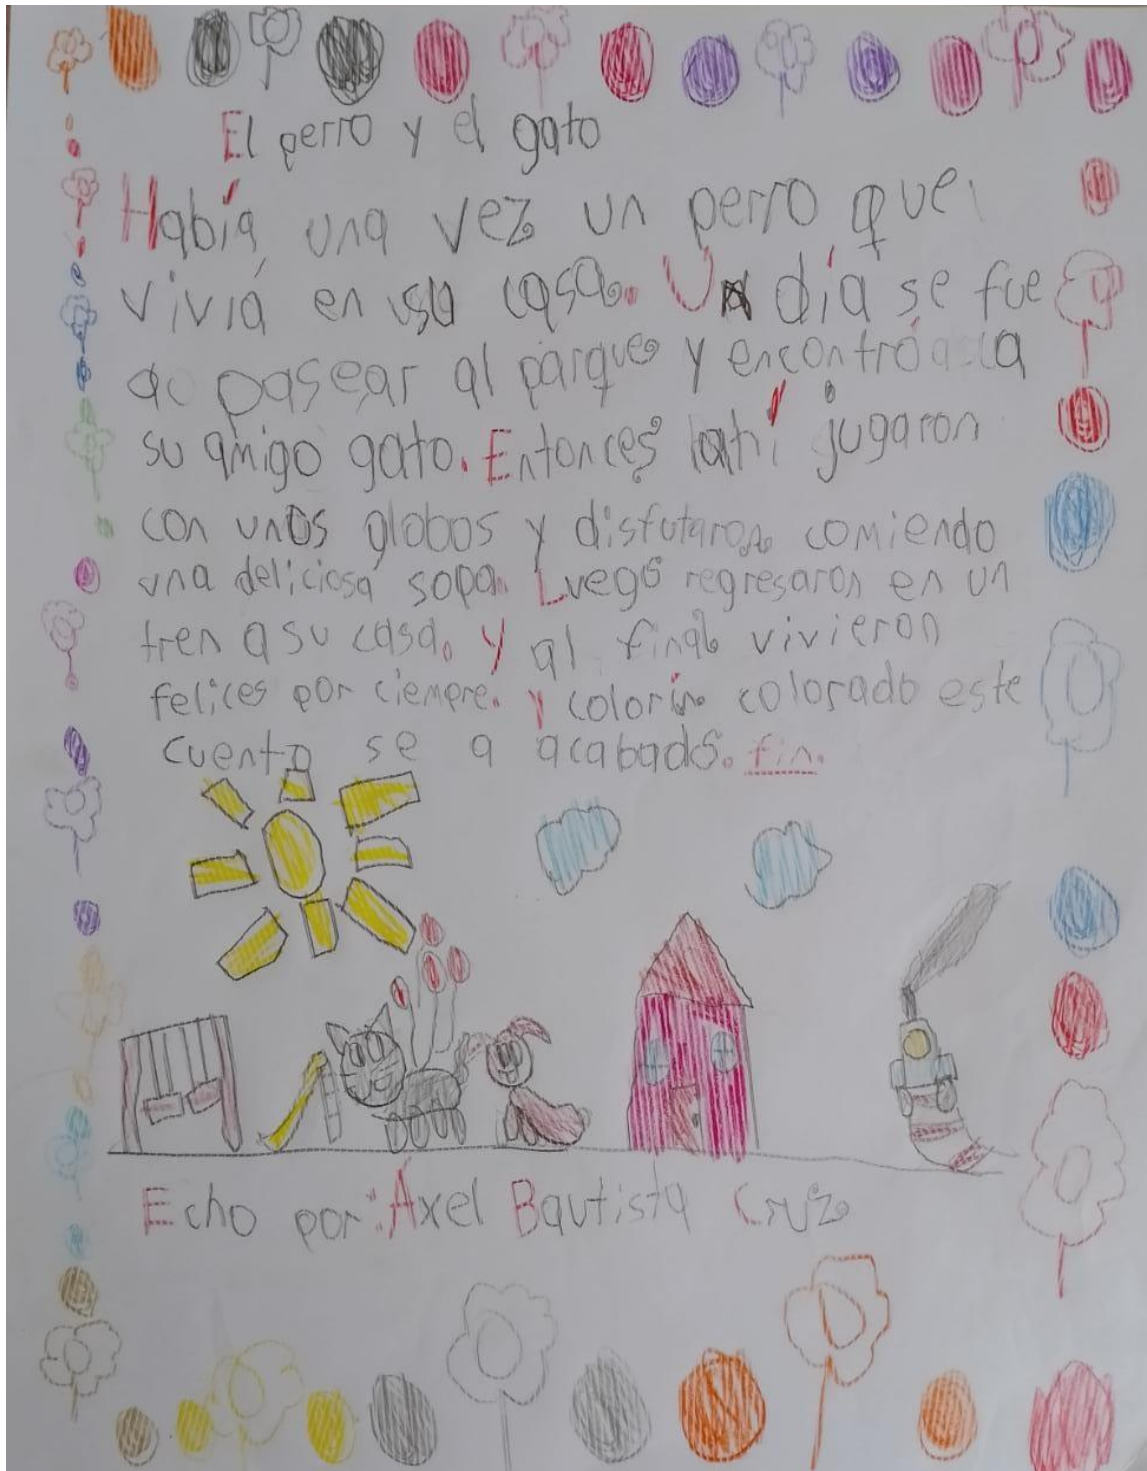 El perro y el gato
Había una vez un perro que
vivía en su casa. Un día se fue
a pasear al parque y encontró a
su amigo gato. Entonces ahí jugaron
con unos globos y disfutaron comiendo
una deliciosa sopa. Luego regresaron en un
tren a su casa. y al final vivieron
felices por ciempre. y colorín colorado este
cuento se a acabado. fin.
Echo por: Axel Bautista Cruz